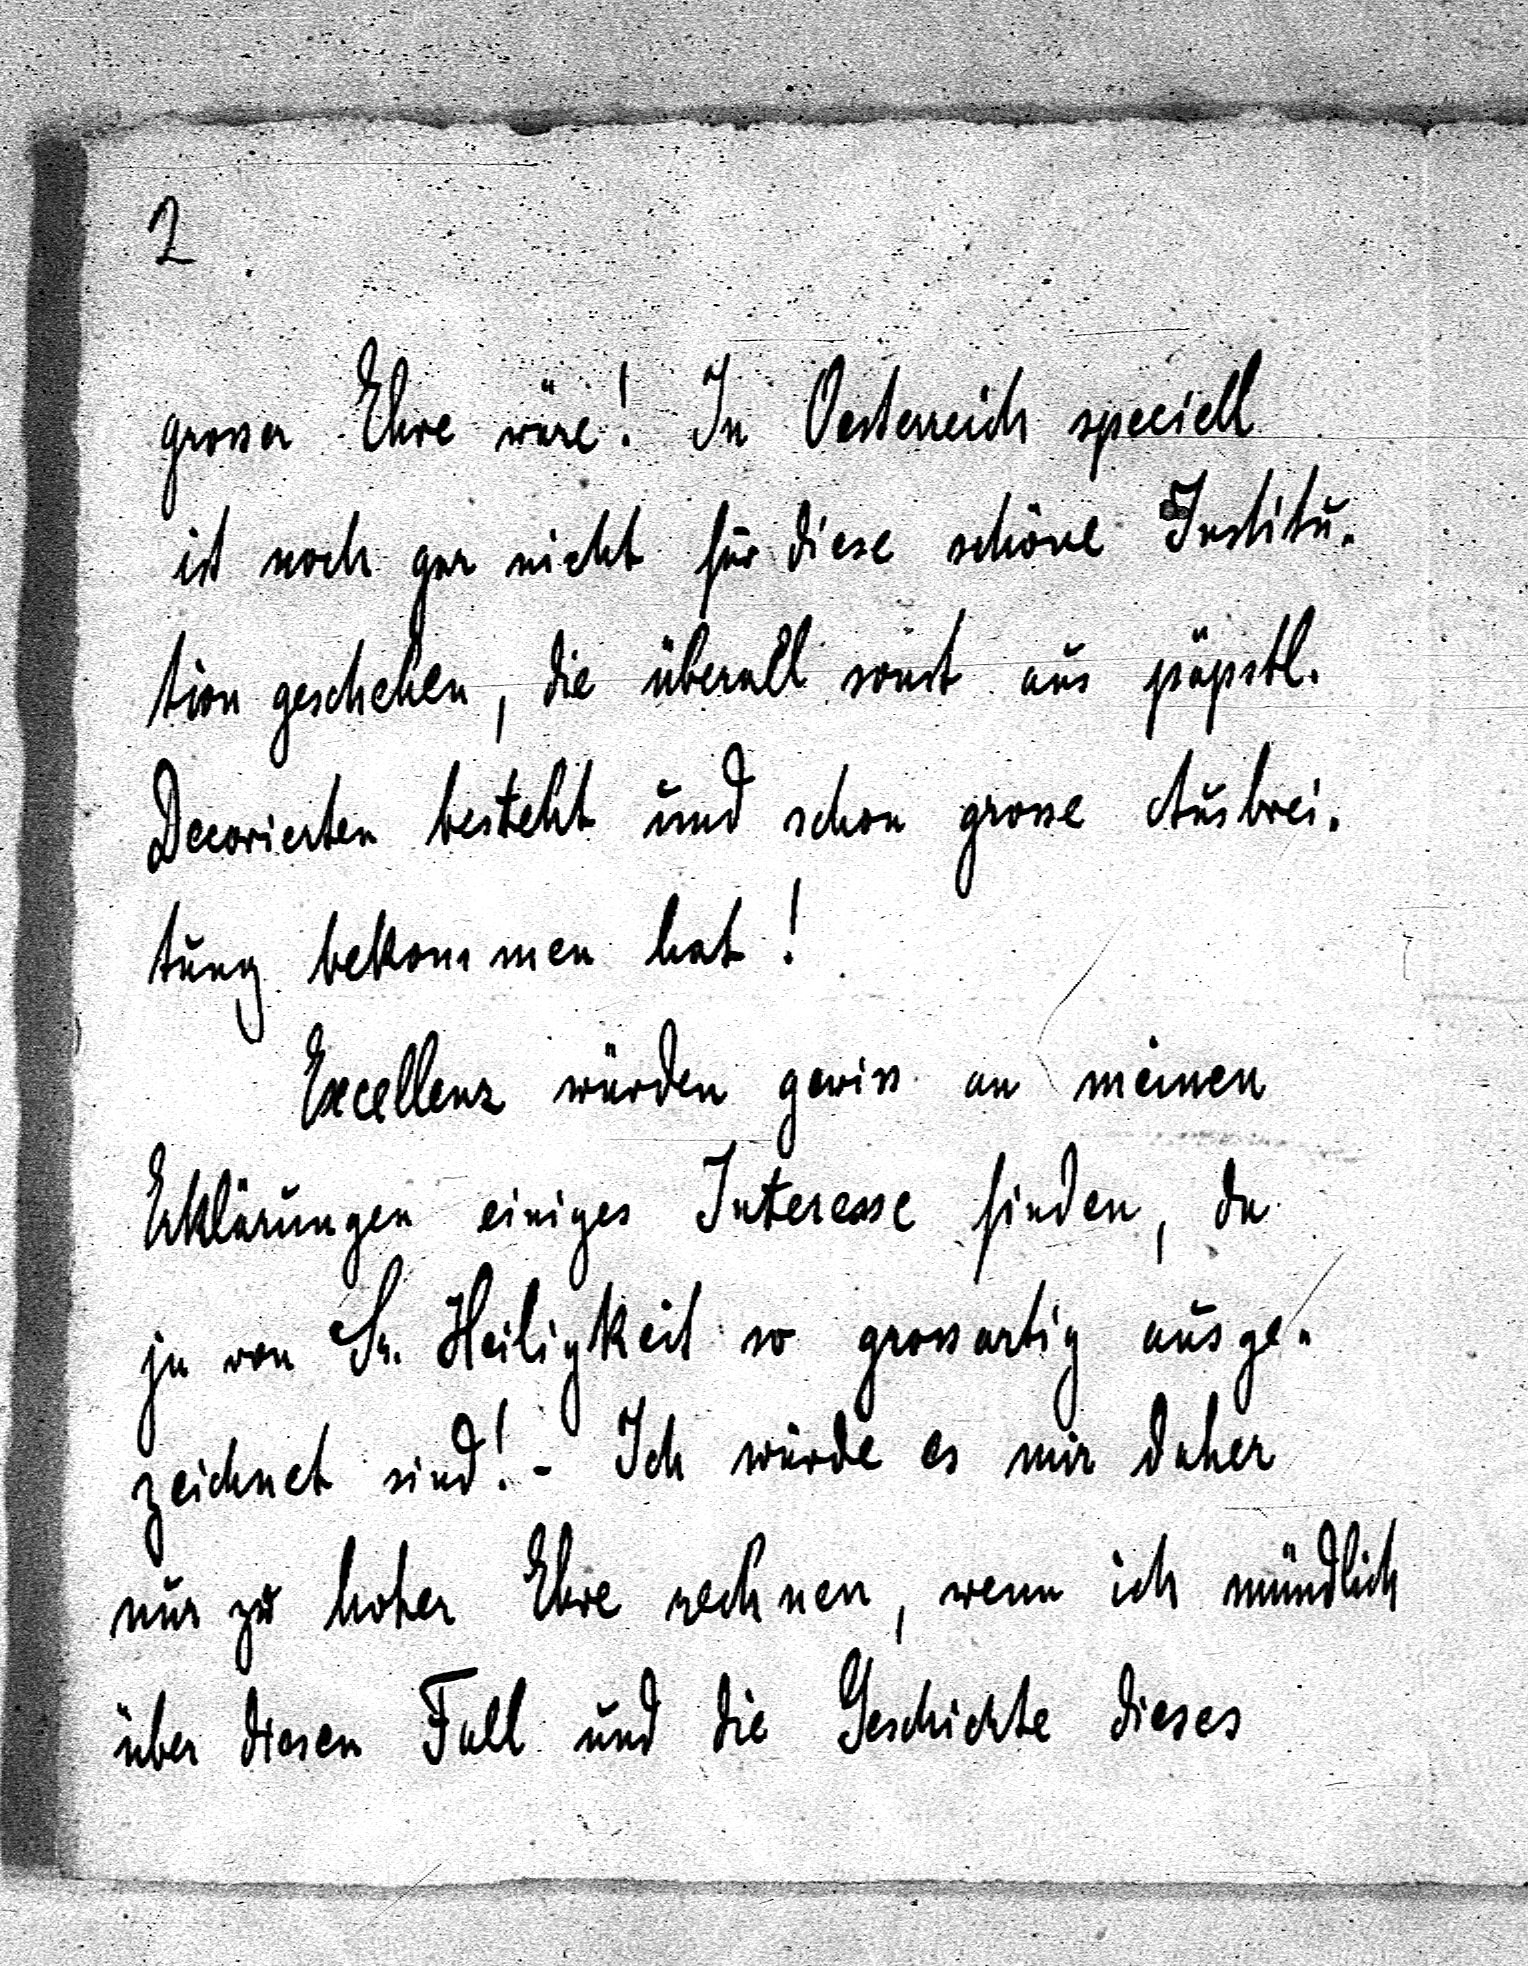 2
grosser Ehre wäre! In Oesterreich speciell
ist noch gar nicht für diese schöne Institu-
tion geschehen, die überall sonst aus päpstl.
Decorierten besteht und schon grosse Ausbrei-
tung bekommen hat!
Excellenz würden gewiss an meinen
Erklärungen einiges Interesse finden, da
ja von Sr. Heiligkeit so grossartig ausge-
zeichnet sind! - Ich würde es mir daher
nur zu hoher Ehre rechnen, wenn ich mündlich
über diesen Fall und die Geschichte dieses